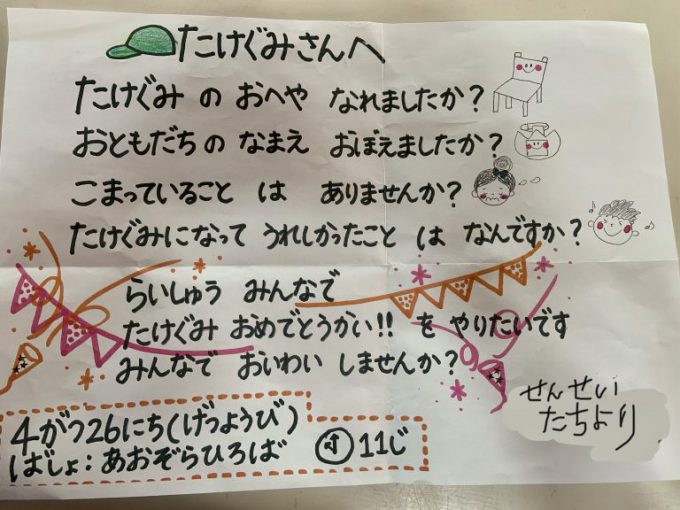 たけぐみさんへ
たけぐみ の おへや なれましたか?
おともだちの なまえ おぼえましたか?
こまっていること は ありませんか?
たけぐみになって うれしかったこと は なんですか?
らいしゅう みんなで
たけぐみ おめでとうかい!! を やりたいです
みんなで おいわい しませんか?
せんせい
たちより
4がつ26にち(げつようび)
ばしょ:あおぞらひろば
11じ